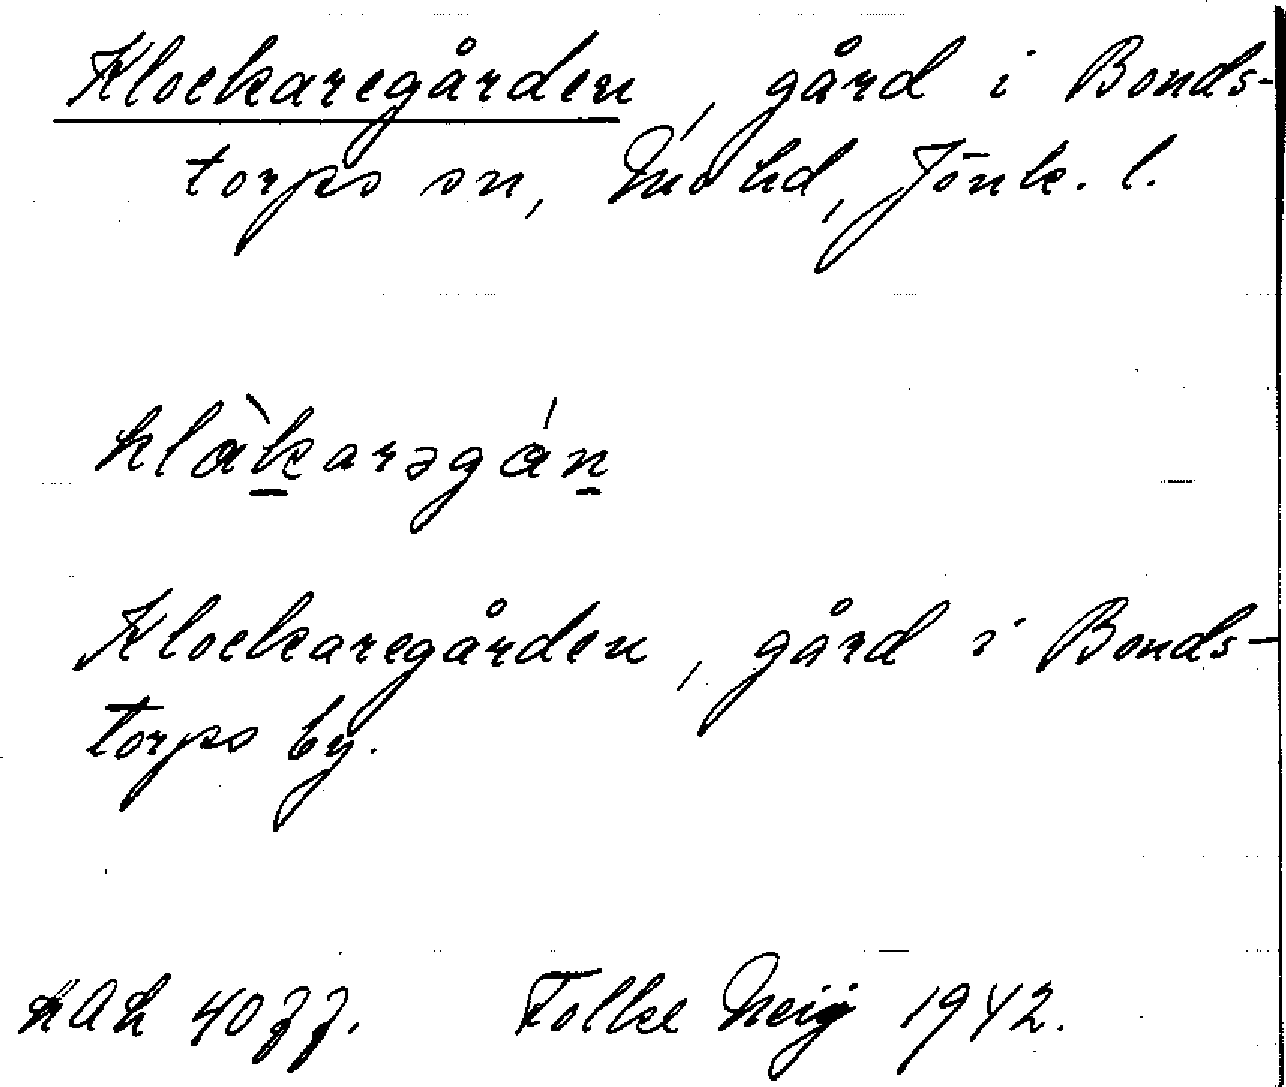 Klockaregården, gård i Bonds-
torps sn, Mo hd, Jönk. l.
klàkarəgán
Klockaregården, gård i Bonds-
torps by.
Folke Neij 1942.